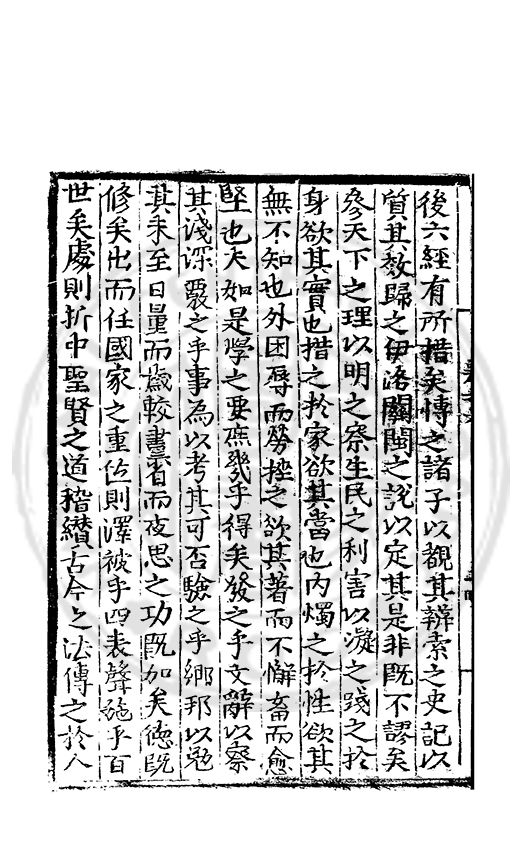 後六經有所措矣愽之諸子以觀其辯索之史記以
質其敎歸之伊洛關閩之說以定其是非旣不謬矣
參天下之理以明之察生民之利害以凝之踐之扵
身欲其實也措之扵家欲其當也內燭之扵性欲其
無不知也外困辱而勞挫之欲其著而不懈畜而愈
堅也夫如是學之要庶幾乎得矣發之乎文辭以察
其淺深覈之乎事為以考其可否驗之乎鄉邦以勉
其未至日量而歲較晝省而夜思之功旣加矣德旣
修矣出而任國家之重位則澤被乎四表聲施乎百
世矣處則折中聖賢之道稽纘古今之法傳之於人